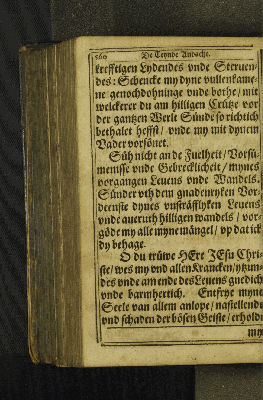 560 De Teynde Andacht.
krefftigen Lydendes vnde Steruen-
des: Schencke my dyne vullenkame-
ne genochdohninge vnde bothe / mit
welckerer du am hilligen Crütze vor
der gantzen Werlt Sünde so richtich
bethalet heffst / vnde my mit dynem
Vader vorsönet.
Süh nicht an de / Vorsü-
menisse vnde Gebrecklicheit / mynes
vorgangen Leuens vnde Wandels.
Sünder vth dem gnadenryken Vor-
deenste dynes vnsträfflyken Leuens
vnde aueruth hilligen wandels / vor-
göde my alle myne mängel / vp dat ick
dy behage.
O du trüwe HErr JEsu Chri-
ste / wes my vnd allen Krancken / ytzun-
des vnde am ende des Leuens gnedich
vnde barmhertich. Entfrye myne
Seele van allem anlope / nastellende
vnd schaden der bösen Geiste / erholdt
my